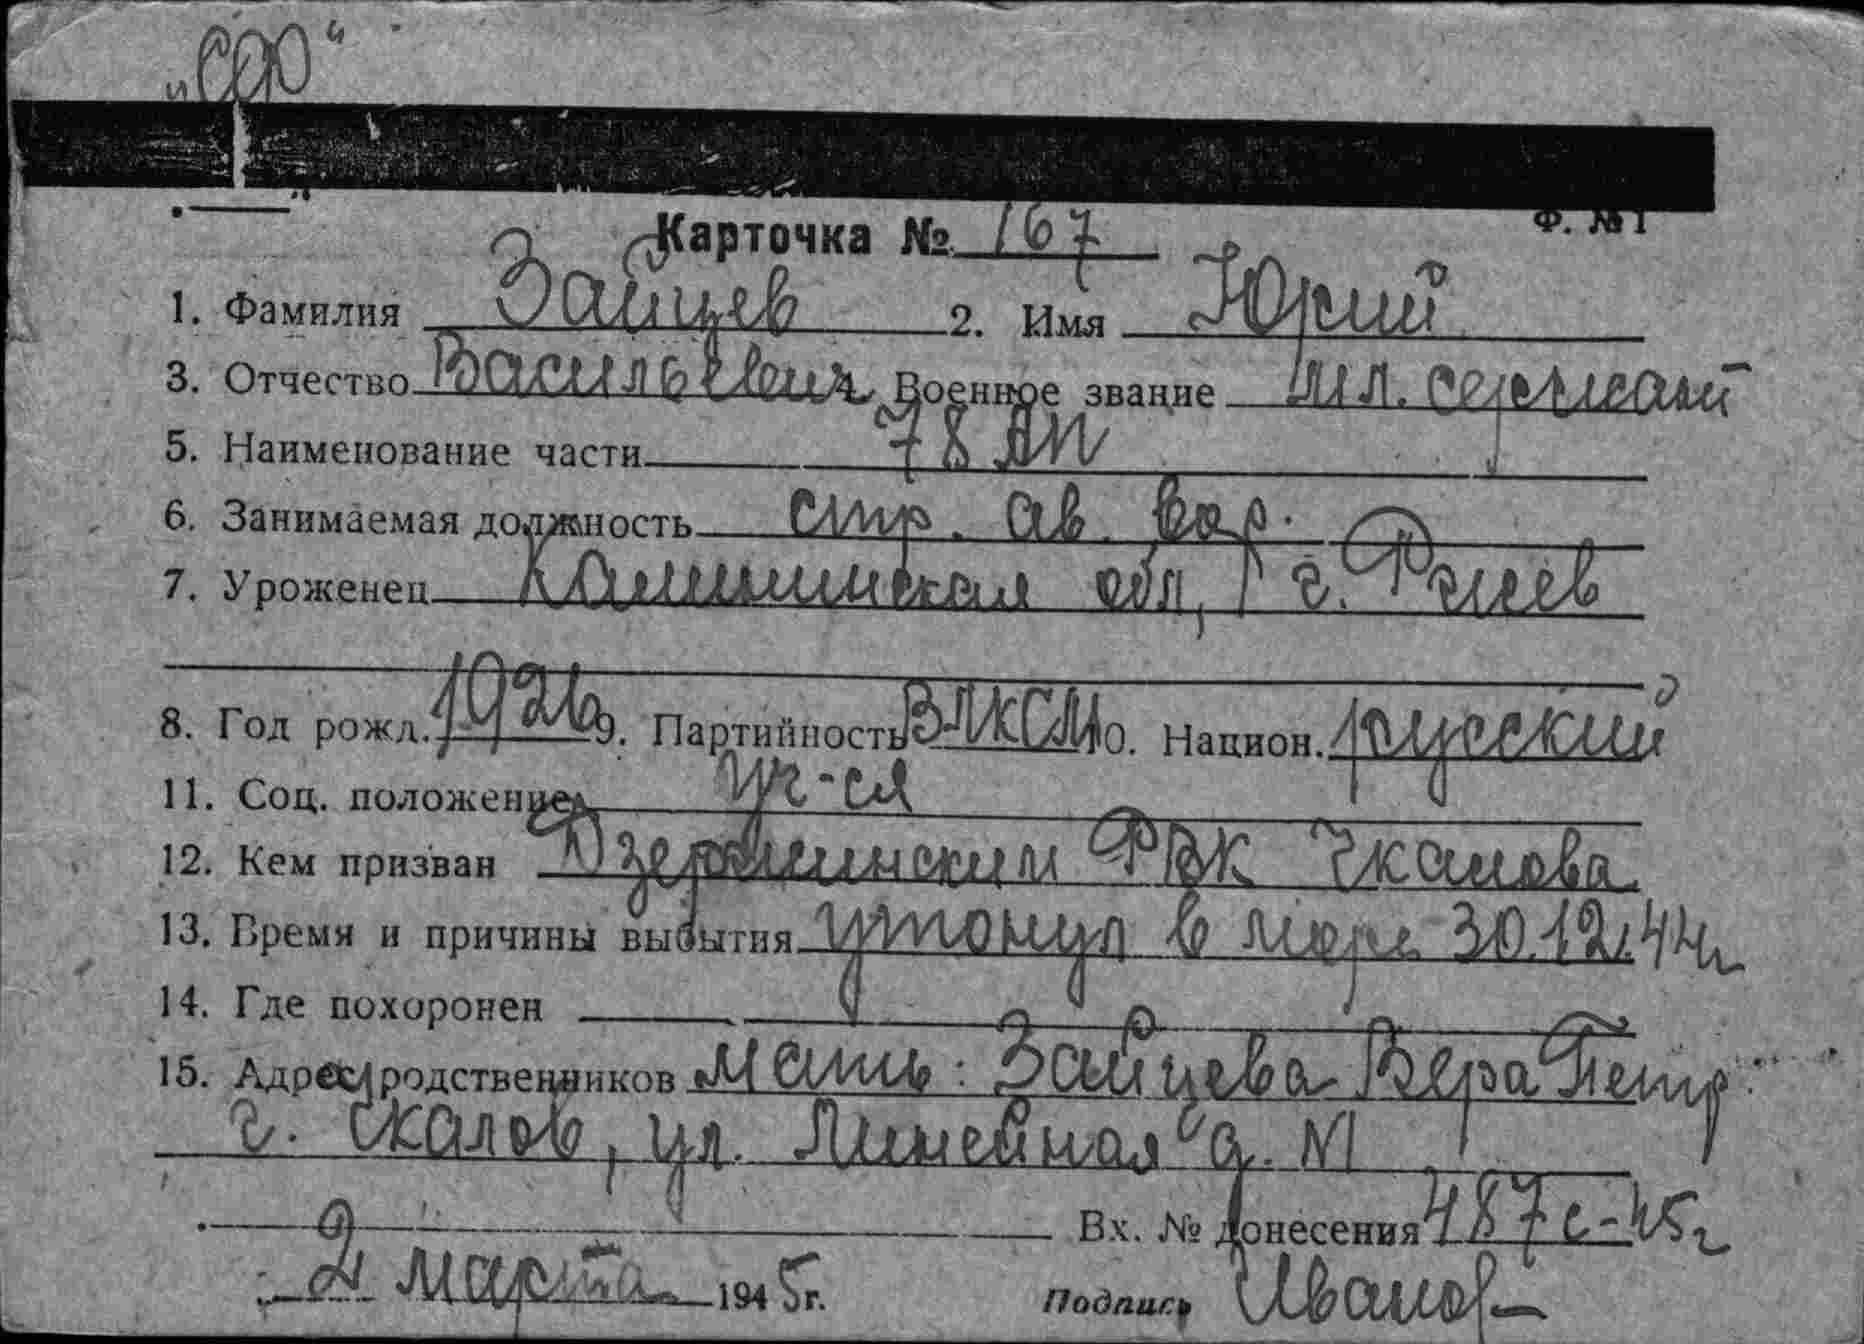 „СФ“
Ф. №1
Карточка № 167
1. Фамилия Зайцев 2. Имя Юрий
3. Отчество Васильевич Военное звание мл. сержант
5. Наименование части 78 АП
6. Занимаемая должность стр. ав. вор.
7. Уроженец Калининская обл, г. Ржев
8. Год рожд. 1926 9. Партийность ВЛКСМ 10. Национ. русский
11. Соц. положение уч-ся
12. Кем призван Дзержинским РВК Чкалова
13. Время и причины выбытия утонул в море 30.12.44г
14. Где похоронен
15. Адрес родственников мать: Зайцева Вера Петр
г. Чкалов, ул. Линейная д. №1
Вх. № донесения 487с-45г
2 марта 1945г. Подпись Иванов